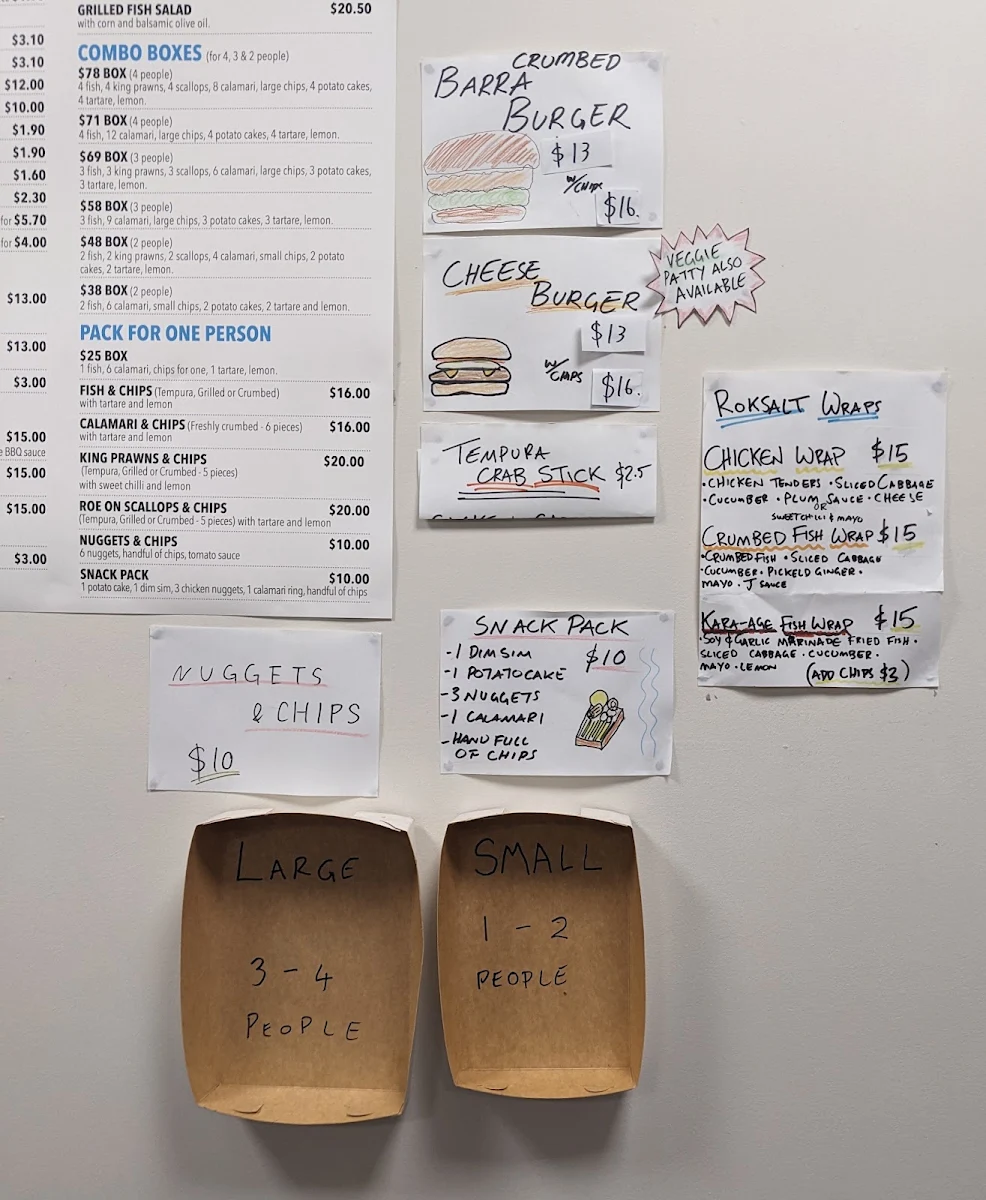 $3.10
$3.10
$12.00
$10.00
$1.90
$1.90
$1.60
$2.30
for $5.70
for $4.00
$13.00
$13.00
$3.00
$15.00
BBQ sauce
$15.00
$15.00
$3.00
GRILLED FISH SALAD $20.50
with corn and balsamic olive oil.
COMBO BOXES (for 4, 3 & 2 people)
$78 BOX (4 people)
4 fish, 4 king prawns, 4 scallops, 8 calamari, large chips, 4 potato cakes,
4 tartare, lemon.
$71 BOX (4 people)
4 fish, 12 calamari, large chips, 4 potato cakes, 4 tartare, lemon.
$69 BOX (3 people)
3 fish, 3 king prawns, 3 scallops, 6 calamari, large chips, 3 potato cakes,
3 tartare, lemon.
$58 BOX (3 people)
3 fish, 9 calamari, large chips, 3 potato cakes, 3 tartare, lemon.
$48 BOX (2 people)
2 fish, 2 king prawns, 2 scallops, 4 calamari, small chips, 2 potato
cakes, 2 tartare, lemon.
$38 BOX (2 people)
2 fish, 6 calamari, small chips, 2 potato cakes, 2 tartare and lemon.
PACK FOR ONE PERSON
$25 BOX
1 fish, 6 calamari, chips for one, 1 tartare, lemon.
FISH & CHIPS (Tempura, Grilled or Crumbed) $16.00
with tartare and lemon
CALAMARI & CHIPS (Freshly crumbed - 6 pieces) $16.00
with tartare and lemon
KING PRAWNS & CHIPS $20.00
(Tempura, Grilled or Crumbed - 5 pieces)
with sweet chilli and lemon
ROE ON SCALLOPS & CHIPS $20.00
(Tempura, Grilled or Crumbed - 5 pieces) with tartare and lemon
NUGGETS & CHIPS $10.00
6 nuggets, handful of chips, tomato sauce
SNACK PACK $10.00
1 potato cake, 1 dim sim, 3 chicken nuggets, 1 calamari ring, handful of chips
CRUMBED
BARRA
BURGER
$13
W/CHIPS
$16.
CHEESE
BURGER
$13
W/
CHIPS
$16.
VEGGIE
PATTY ALSO
AVAILABLE
TEMPURA
CRAB STICK $2.5
ROKSALT WRAPS
CHICKEN WRAP $15
•CHICKEN TENDERS •SLICED CABBAGE
•CUCUMBER • PLUM SAUCE • CHEESE
OR
SWEET CHILLI & MAYO
CRUMBED FISH WRAP $15
•CRUMBED FISH • SLICED CABBAGE
•CUCUMBER • PICKELD GINGER •
MAYO • J SAUCE
KARA-AGE FISH WRAP $15
•SOY & GARLIC MARINADE FRIED FISH •
SLICED CABBAGE • CUCUMBER •
MAYO • LEMON (ADD CHIPS $3)
NUGGETS
& CHIPS
$10
SNACK PACK
-1 DIM SIM $10
-1 POTATOCAKE
-3 NUGGETS
-1 CALAMARI
-HAND FULL
OF CHIPS
LARGE
3 - 4
PEOPLE
SMALL
1 - 2
PEOPLE